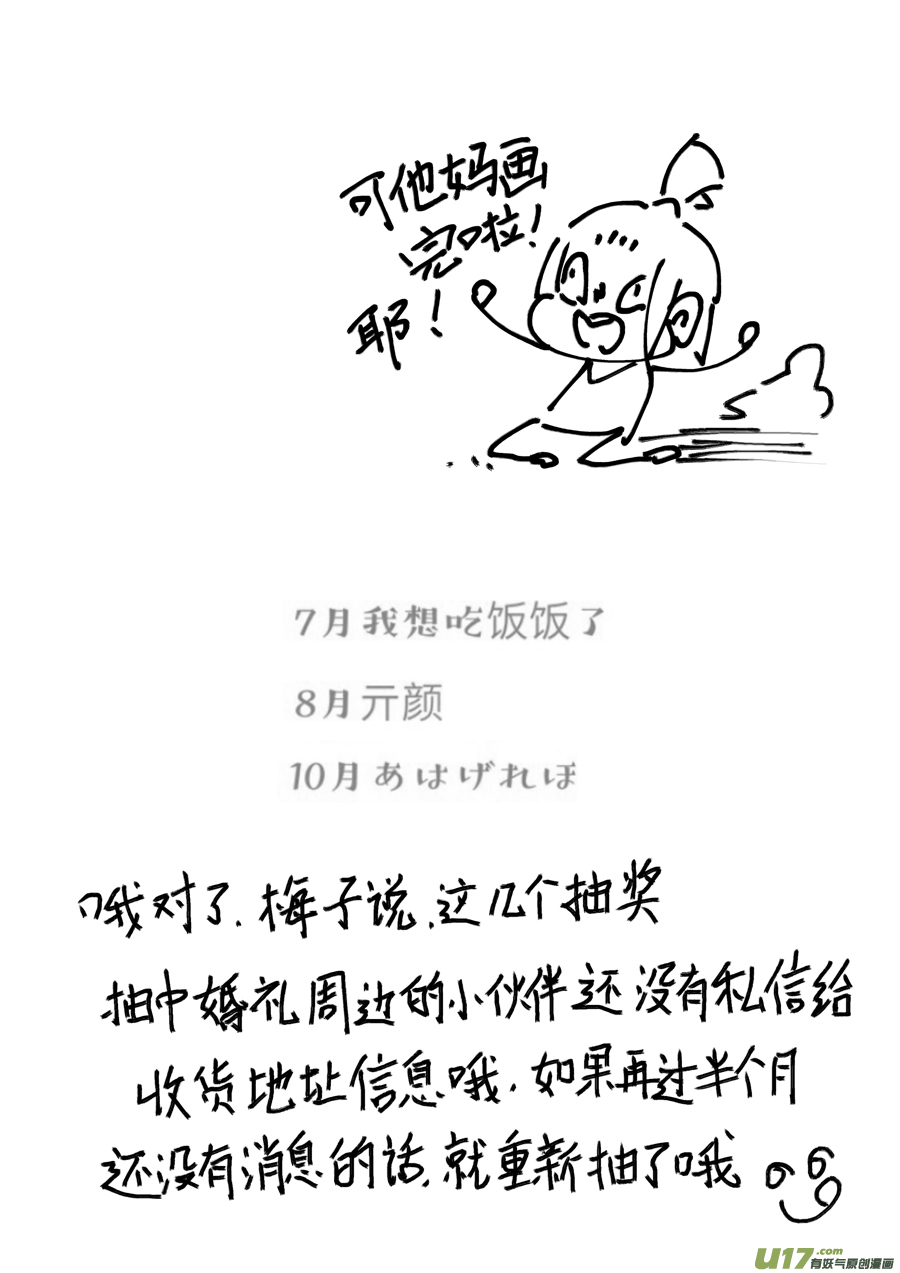 可他妈画
完啦！
耶！
7月我想吃饭饭了
8月亓颜
10月あはげれぼ
哦对了.梅子说.这几个抽奖
抽中婚礼周边的小伙伴还没有私信给
收货地址信息哦.如果再过半个月
还没有消息的话.就重新抽了哦
U17.com
有妖气原创漫画